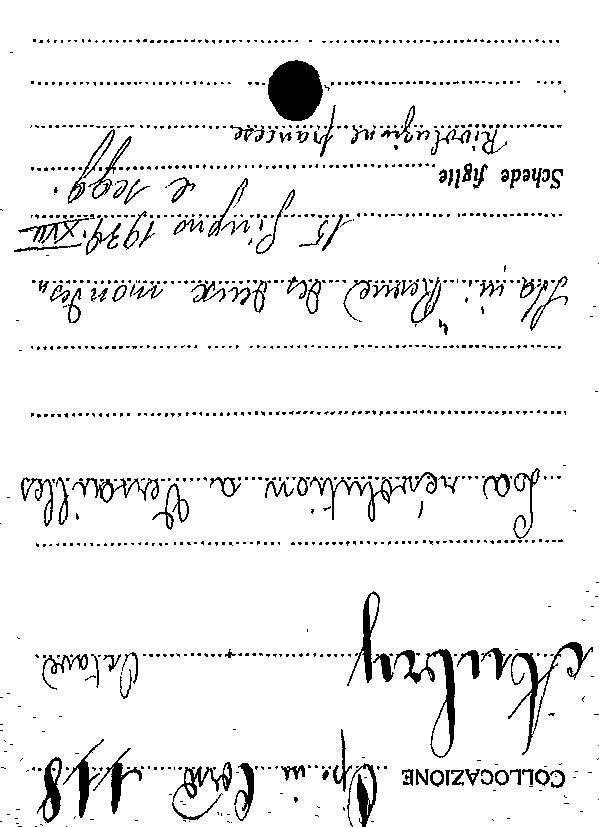 COLLOCAZIONE Op. in Cons 118
Aubry Octave
La révolution a Versailles
Sta in: "Revue des deux mondes"
15 giugno 1939.XVII e segg.
Schede figlie
Rivoluzione francese